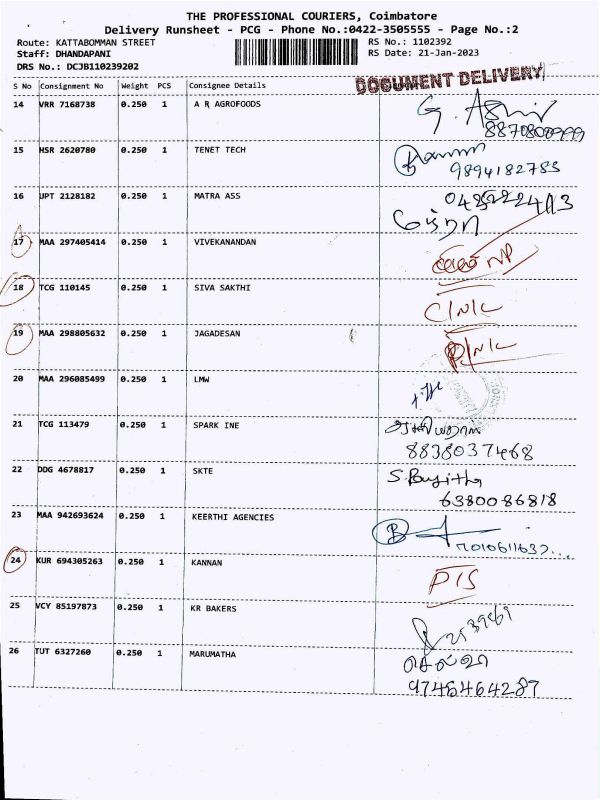 THE PROFESSIONAL COURIERS, Coimbatore
Delivery Runsheet - PCG - Phone No.:0422-3505555 - Page No.:2
Route: KATTABOMMAN STREET RS No.: 1102392
Staff: DHANDAPANI RS Date: 21-Jan-2023
DRS No.: DCJB110239202
DOCUMENT DELIVERY
S No Consignment No Weight PCS Consignee Details
14 VRR 7168738 0.250 1 A R AGROFOODS
15 HSR 2620780 0.250 1 TENET TECH
9894182783
16 JPT 2128182 0.250 1 MATRA ASS
17 MAA 297405414 0.250 1 VIVEKANANDAN
18 TCG 110145 0.250 1 SIVA SAKTHI
19 MAA 298805632 0.250 1 JAGADESAN
20 MAA 296085499 0.250 1 LMW
21 TCG 113479 0.250 1 SPARK INE
8838037468
22 DDG 4678817 0.250 1 SKTE
6380086818
23 MAA 942693624 0.250 1 KEERTHI AGENCIES
24 KUR 694305263 0.250 1 KANNAN
25 VCY 85197873 0.250 1 KR BAKERS
26 TUT 6327260 0.250 1 MARUMATHA
செல்வா
9746464287